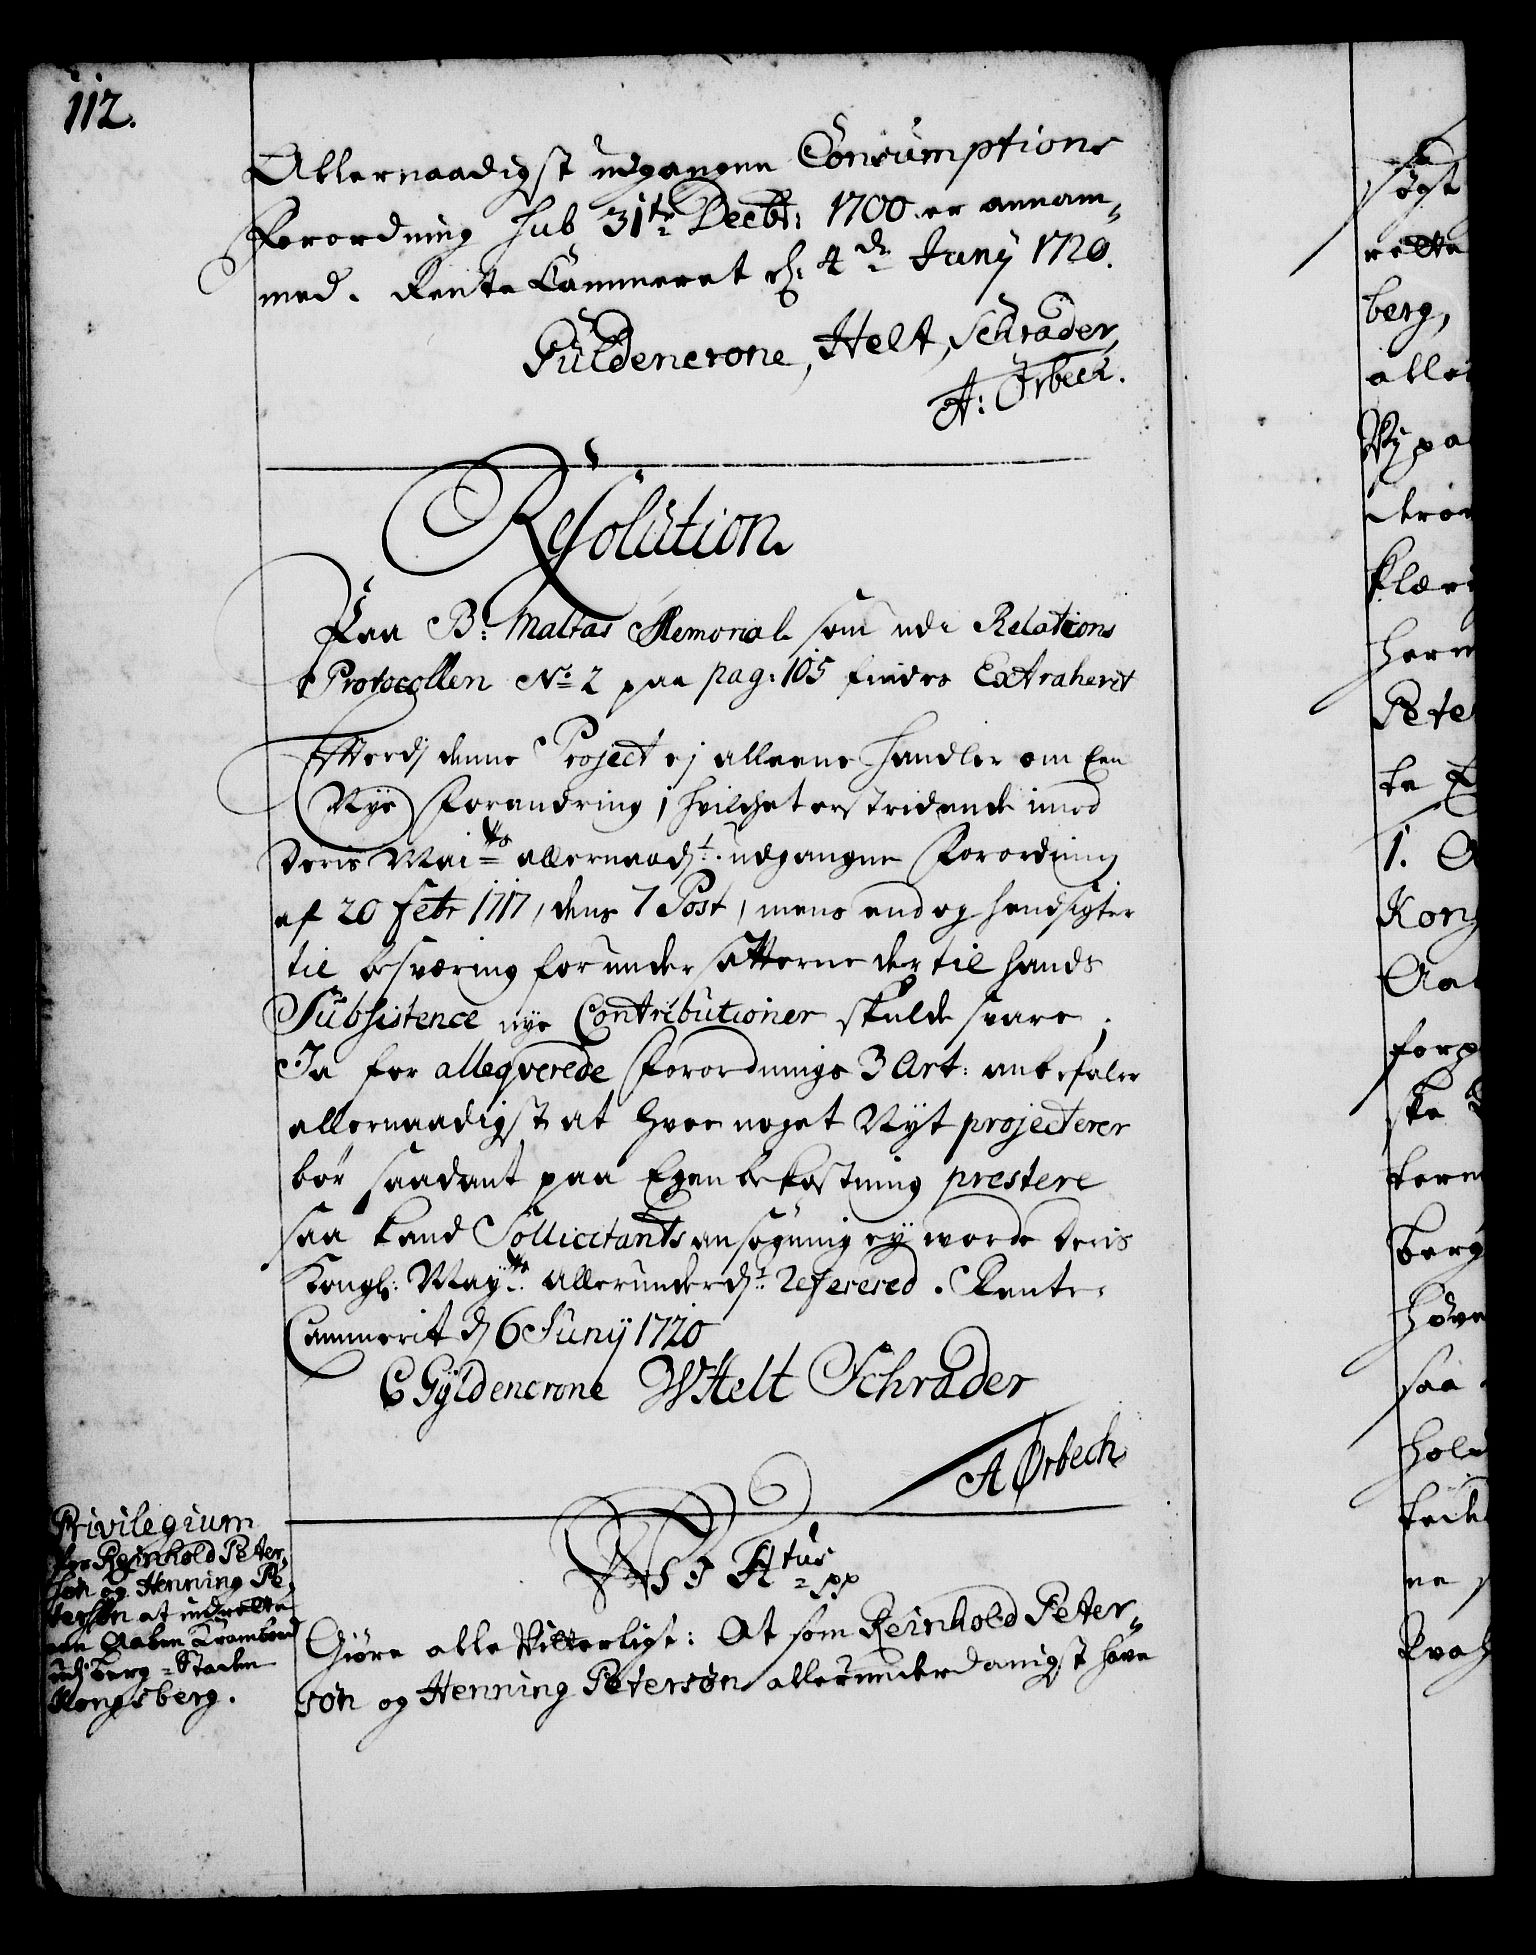 112.
Allernaadigst udgangne Consumptions
Forordning sub 31te Decbr: 1700. er annam„
med. Rente Cammeret d: 4de Juny 1720.
Güldencrone, Helt, Schrader,
A: Ørbeck.
Resolution
Paa B: Maltas Memorial som udi Relations
Protocollen No: 2 paa pag: 105 findes Extraherit
Efterdj denne Project ej alleene handler om Een
Nye Forandring, hvilchet er stridende imod
Deris Mai:ts allernaadst: udgangne Forordning
af 20 Febr 1717, dens 7 Post, mens end og hensigter
til besværing for undersaatterne der til hands
Subsistence nye Contributioner skulde svare;
Ja for alleqverede Forordnings 3 Art: anbefaler
allernaadigst at hver noget Nyt projecterer
bør saadant paa Egen bekostning prestere
saa kand Sollicitants ansøgning ey worde Deris
Kongl: May:ts allerunderdst: Referered. Rente-
Cammerit d 6 Juny 1720
C Gyldencrone WHelt Schrader
A Ørbech
Privilegium
for Reinhold Peter„
søn og Henning Pe„
tersøn at indrette
een Aaben Krambod
udj Berg-Staden
Kongsberg.
WFF4tus pp
Giøre alle Vitterligt: At som Reinhold Peter„
søn og Henning Petersøn allerunderdanigst have
søgt
rette
berg,
herm
Pete
te
1.
Kong
Aab
forp
ske
berg
høve
saa
hold
ne